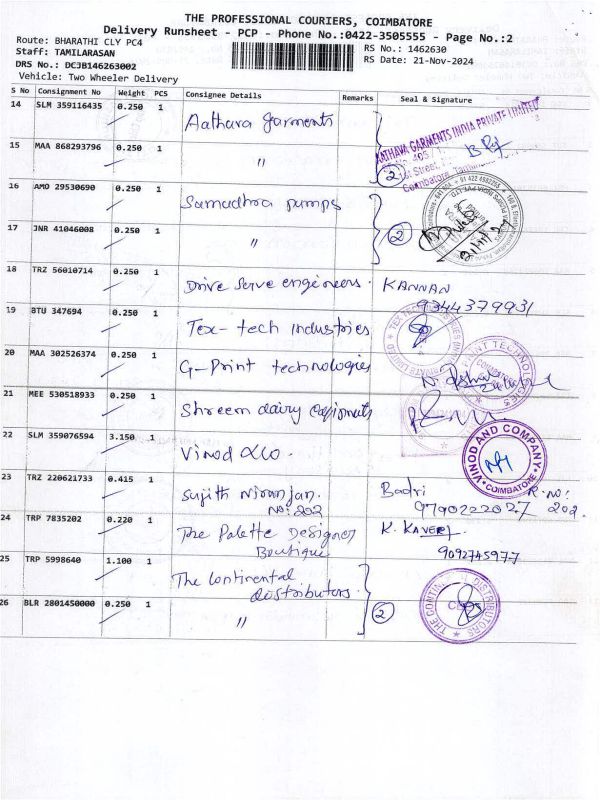 THE PROFESSIONAL COURIERS, COIMBATORE
Delivery Runsheet - PCP - Phone No.:0422-3505555 - Page No.:2
Route: BHARATHI CLY PC4
RS No.: 1462630
Staff: TAMILARASAN
RS Date: 21-Nov-2024
DRS No.: DCJB146263002
Vehicle: Two Wheeler Delivery
S No Consignment No Weight PCS Consignee Details Remarks Seal & Signature
14 SLM 359116435 0.250 1 Aathava garments
KATHAVA GARMENTS INDIA PRIVATE LIMITED
15 MAA 868293796 0.250 1 "
2
16 AMO 29530690 0.250 1 Samudhra pumps
17 JNR 41046008 0.250 1 "
2
18 TRZ 56010714 0.250 1 Drive Serve engineers. KANNAN
9344379931
19 BTU 347694 0.250 1 Tex-tech industries
20 MAA 302526374 0.250 1 G-Print technologies
21 MEE 530518933 0.250 1 Shreem dairy
22 SLM 359076594 3.150 1 Vinod &co.
VINOD AND COMPANY
COIMBATORE
23 TRZ 220621733 0.415 1 Sujith Niranjan. Badri R.NO:
NO:202 9790222027 202.
24 TRP 7835202 0.220 1 The Palette Designer K. KAVERI
Boutique 9092745977
25 TRP 5998640 1.100 1 The Continental
distributors.
THE CONTINENTAL DISTRIBUTORS
26 BLR 2801450000 0.250 1 "
2